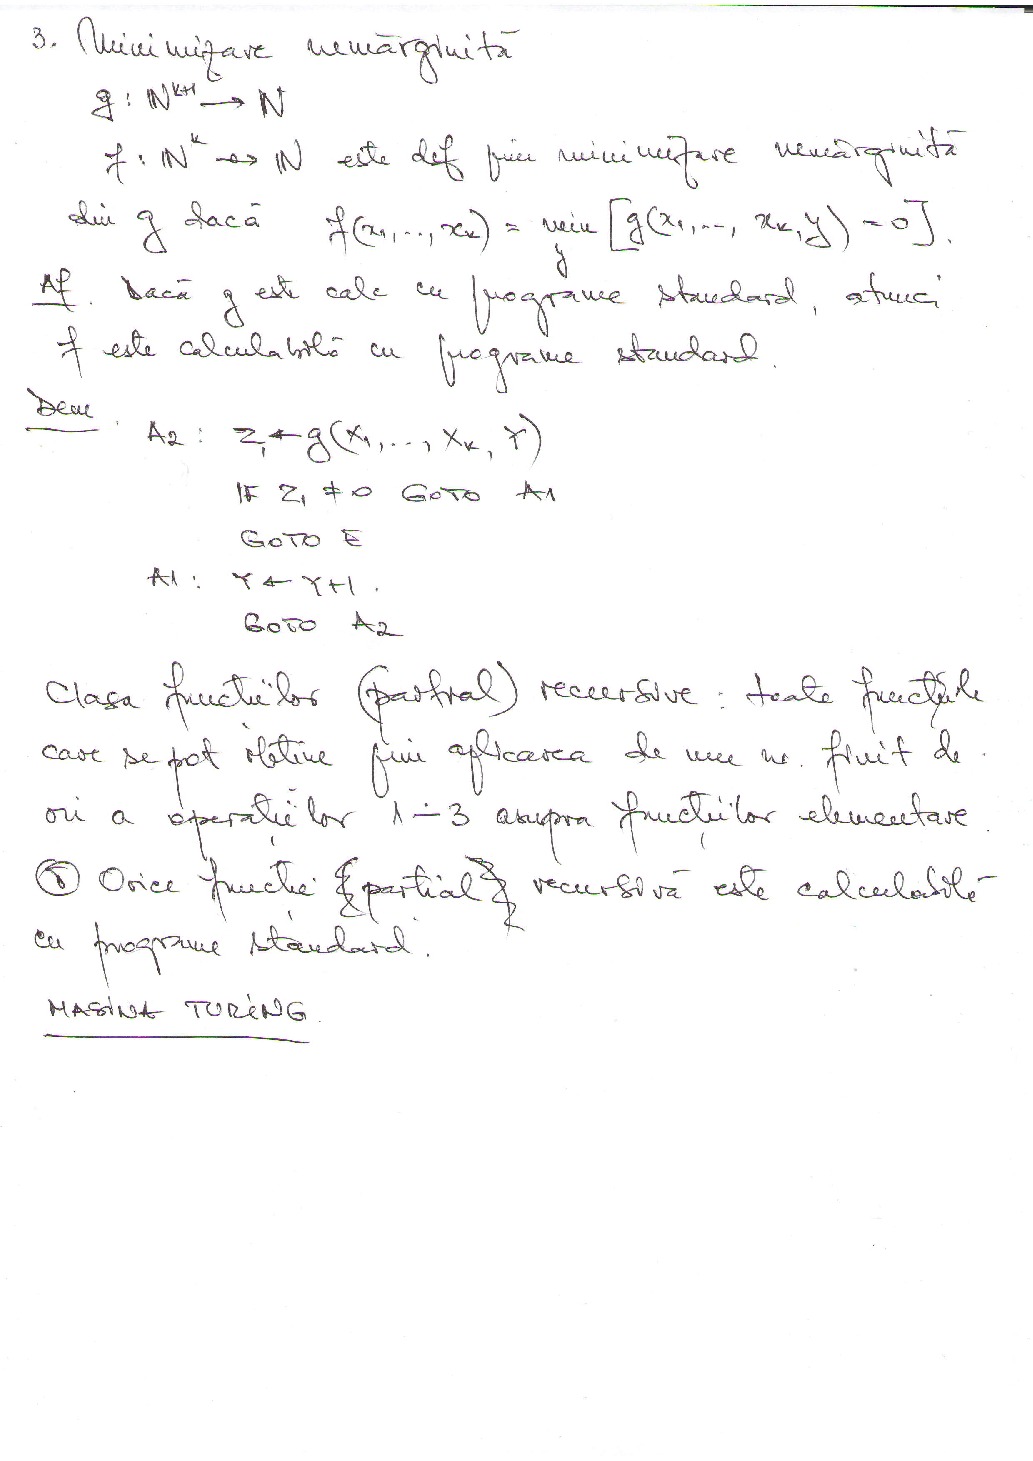 3. Minimizare nemărginită
g : ℕᵏ⁺¹ → ℕ
f : ℕᵏ ↔ ℕ este def prin minimizare nemărginită
din g dacă f(x₁,..., xₖ) = min y [g(x₁,..., xₖ, y) = 0].
Af. Dacă g este calc cu programe standard, atunci
f este calculabilă cu programe standard.
Dem.
A2 : Z₁ ← g(X₁,..., Xₖ, Y)
IF Z₁ ≠ 0 GOTO A1
GOTO E
A1 : Y ← Y+1.
GOTO A2
Clasa funcțiilor (parțial) recursive : toate funcțiile
care se pot obține prin aplicarea de un nr. finit de
ori a operațiilor 1÷3 asupra funcțiilor elementare.
Ⓣ Orice funcție {parțial} recursivă este calculabilă
cu programe standard.
MAȘINA TURING.